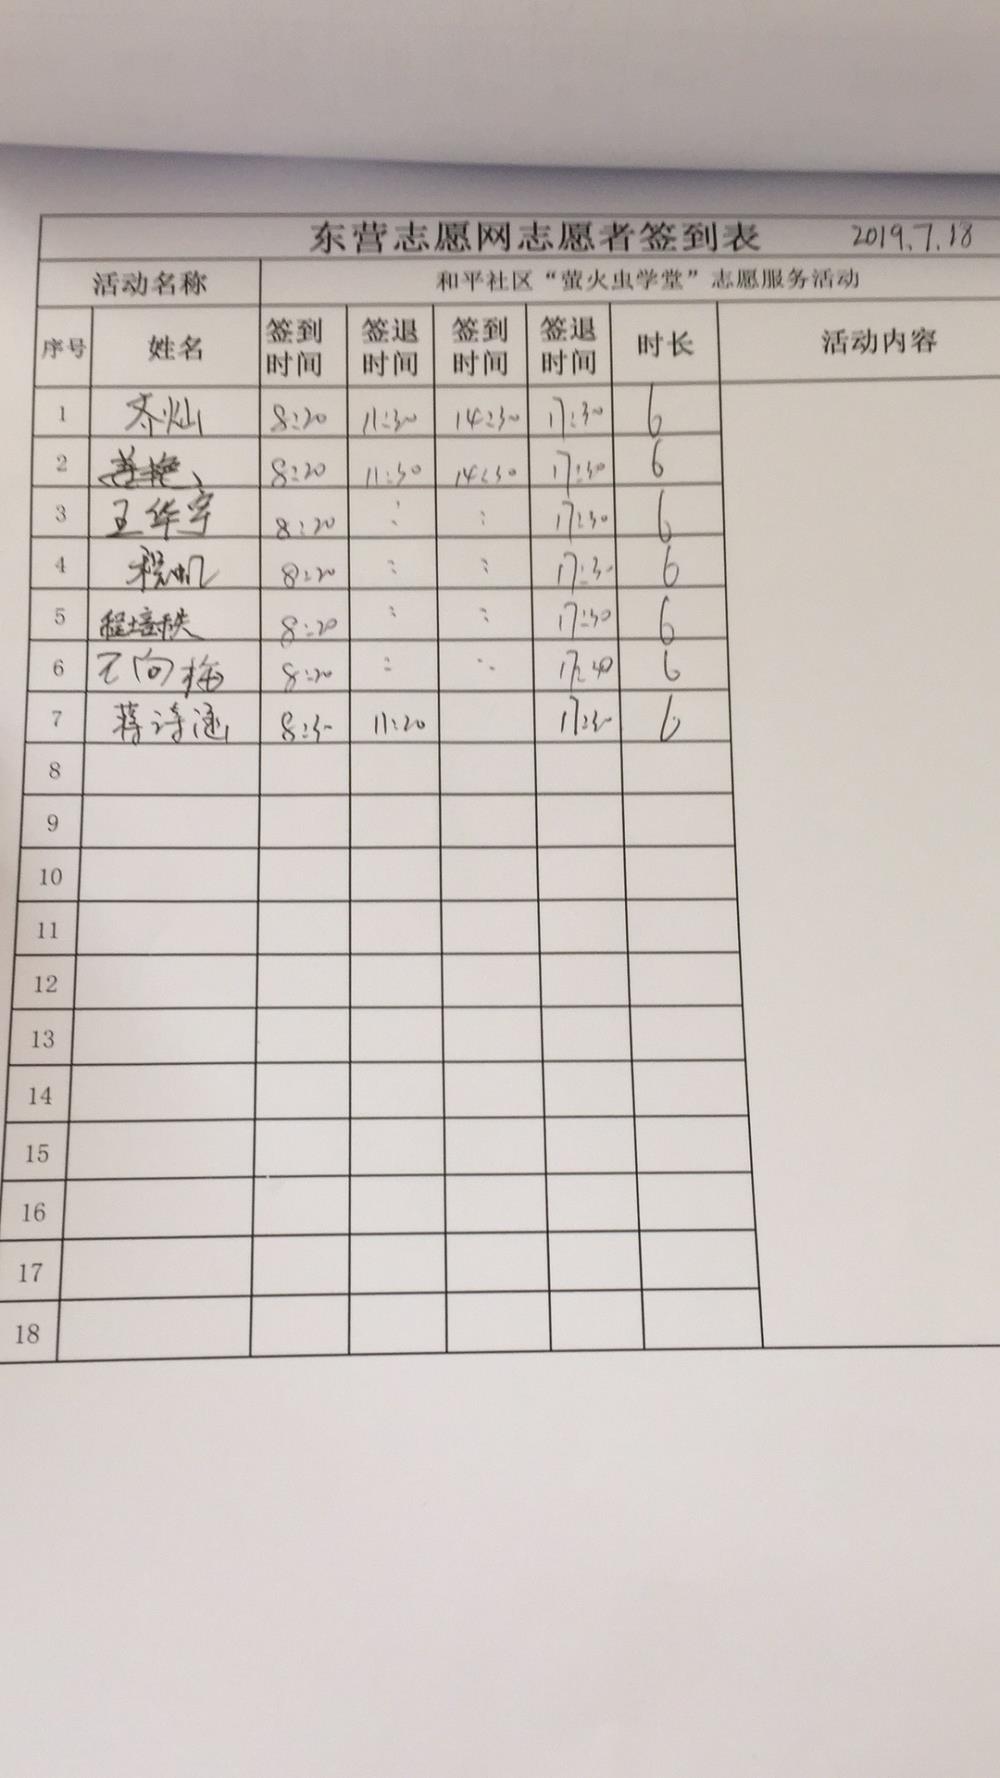 东营志愿网志愿者签到表 2019.7.18
活动名称 和平社区“萤火虫学堂”志愿服务活动
序号 姓名 签到时间 签退时间 签到时间 签退时间 时长 活动内容
1 齐灿 8:20 11:30 14:30 17:30 6
2 8:20 11:30 14:30 17:30 6
3 王华宇 8:20 : : 17:30 6
4 8:20 : : 17:30 6
5 程培秩 8:20 : : 17:30 6
6 王向梅 8:20 : : 17:40 6
7 蒋诗涵 8:30 11:20 17:30 6
8
9
10
11
12
13
14
15
16
17
18